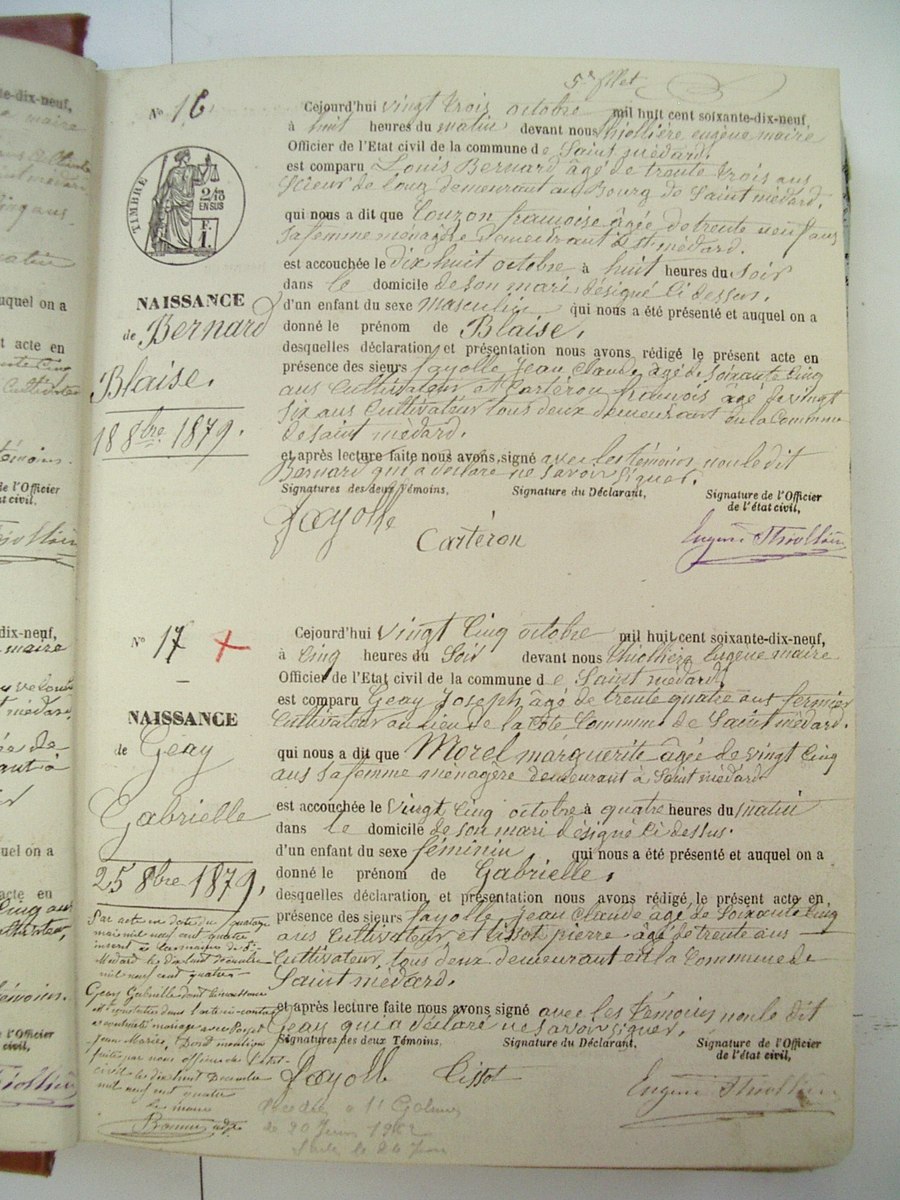 te-dix-neuf,
maire
auquel on a
t acte en
cultivateur
témoins.
de l'Officier
at civil.
dix-neuf,
maire
uel on a
acte en
témoins.
e l'Officier
civil,
5e fllet
No 16
TIMBRE
2/10
EN SUS
F.
1.
Cejourd'hui vingt trois octobre mil huit cent soixante-dix-neuf,
à huit heures du matin devant nous Thiollière eugène maire
Officier de l'Etat civil de la commune de Saint médard.
est comparu Louis Bernard âgé de trente trois ans
scieur de long demeurant au Bourg de Saint médard.
qui nous a dit que Couzon françoise âgée de trente neuf ans
sa femme ménagère demeurant à St médard.
est accouchée le dix huit octobre à huit heures du soir
dans le domicile de son mari désigné ci dessus.
NAISSANCE
de Bernard
Blaise.
18 8bre 1879.
d'un enfant du sexe masculin qui nous a été présenté et auquel on a
donné le prénom de Blaise.
desquelles déclaration et présentation nous avons rédigé le présent acte en
présence des sieurs fayolle Jean Claude âgé de soixante cinq
ans Cultivateur et Cartéron françois âgé de vingt
six ans Cultivateur tous deux demeurant en la Commune
de Saint médard.
et après lecture faite nous avons signé avec les témoins non le dit
Bernard qui a déclaré ne savoir signer.
Signatures des deux Témoins, Signature du Déclarant, Signature de l'Officier
de l'état civil,
Fayolle
Cartéron
Eugène Thiollière
No 17 X
Cejourd'hui vingt cinq octobre mil huit cent soixante-dix-neuf,
à cinq heures du Soir devant nous Thiollière Eugène maire
Officier de l'Etat civil de la commune de Saint médard.
est comparu Geay Joseph âgé de trente quatre ans fermier
Cultivateur au lieu de la Côte Commune de Saint médard.
NAISSANCE
de Geay
Gabrielle
25 8bre 1879.
qui nous a dit que Morel marguerite âgée de vingt cinq
ans sa femme ménagère demeurant à Saint médard
est accouchée le vingt cinq octobre à quatre heures du matin
dans le domicile de son mari désigné ci dessus.
d'un enfant du sexe féminin qui nous a été présenté et auquel on a
donné le prénom de Gabrielle.
desquelles déclaration et présentation nous avons rédigé le présent acte en
présence des sieurs fayolle Jean Claude âgé de soixante cinq
ans Cultivateur, et Cissot pierre âgé de trente ans
Cultivateur, tous deux demeurant en la Commune de
Saint médard.
et après lecture faite nous avons signé avec les témoins non le dit
Geay qui a déclaré ne savoir signer.
Signatures des deux Témoins, Signature du Déclarant, Signature de l'Officier
de l'état civil,
Fayolle Cissot
Eugène Thiollière
Par acte en date du
mil neuf cent quatre
inscrit à la mairie de St
Médard le dix huit Décembre
mil neuf cent quatre
Geay Gabrielle dont la naissance
est constatée dans l'acte ci-contre
a contracté mariage avec
Jean-Marie, Dont mention
faite par nous officier de l'état
civil le dix huit Décembre
mil neuf cent quatre
Le maire
Décédée à St Galmier
le 20 Juin 1962